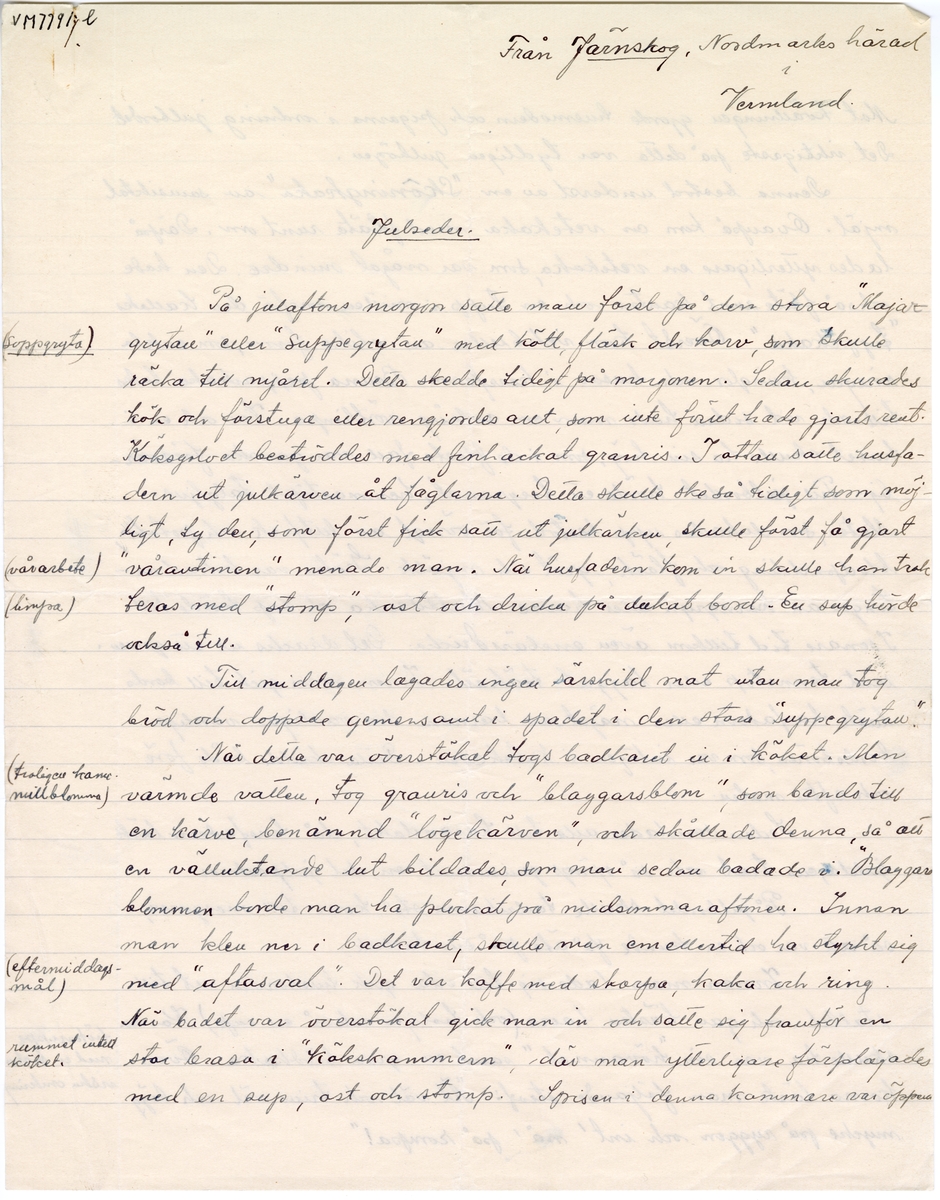 VM7791,7 l
Från Järnskog, Nordmarks härad
i
Vermland.
Julseder.
På julaftons morgon satte man först på den stora "Majar-
(soppgryta) grytan" eller "suppegrytan" med kött, fläsk och korv, som skulle
räcka till nyåret. Detta skedde tidigt på morgonen. Sedan skurades
kök och förstuga eller rengjordes allt, som inte förut hade gjorts rent.
Köksgolvet beströddes med finhackat granris. I ottan satte husfa-
dern ut julkärven åt fåglarna. Detta skulle ske så tidigt som möj-
ligt, ty den, som först fick satt ut julkärven, skulle först få gjort
(vårarbete) "våravtimen" menade man. När husfadern kom in skulle han trak
(limpa) teras med "stomp", ost och dricka på dukat bord. En sup hörde
också till.
Till middagen lagades ingen särskild mat utan man tog
bröd och doppade gemensamt i spadet i den stora "suppegrytan".
När detta var överstökat togs badkaret in i köket. Man
(troligen kamo-
millblomma) värmde vatten, tog granris och "blaggarsblom", som bands till
en kärve, benämnd "lögekärven", och skållade denna, så att
en välluktande lut bildades, som man sedan badade i. "Blaggars
blommen borde man ha plockat på midsommaraftonen. Innan
man klev ner i badkaret, skulle man emellertid ha styrkt sig
(eftermiddags-
mål) med "aftasval". Det var kaffe med skorpa, kaka och ring.
När badet var överstökat gick man in och satte sig framför en
rummet intill
köket. stor brasa i "kökskammern", där man ytterligare förplägades
med en sup, ost och stomp. Spisen i denna kammare var öppen